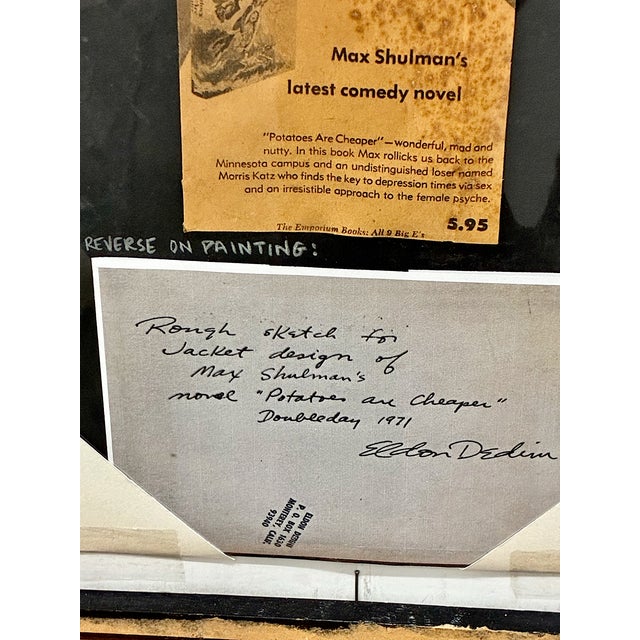 Max Shulman's
latest comedy novel
"Potatoes Are Cheaper"—wonderful, mad and
nutty. In this book Max rollicks us back to the
Minnesota campus and an undistinguished loser named
Morris Katz who finds the key to depression times via sex
and an irresistible approach to the female psyche.
5.95
The Emporium Books: All 9 Big E's
REVERSE ON PAINTING:
Rough sketch for
Jacket design of
Max Shulman's
novel "Potatoes are Cheaper"
Doubleday 1971
Eldon Dedini
ELDON DEDINI
P. O. BOX 1630
MONTEREY, CALIF.
93940